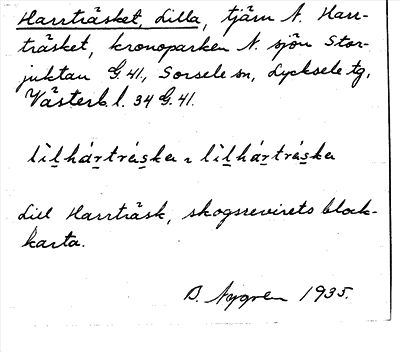 Harrträsket, Lilla, tjärn N. Harr-
träsket, kronoparken N. sjön Stor-
juktan G. 41, Sorsele sn, Lycksele tg,
Västerb. l. 34 G. 41.
lìlhártráska ~ lìlhártráska
Lill Harrträsk, skogsrevirets block-
karta.
B. Nygren 1935.